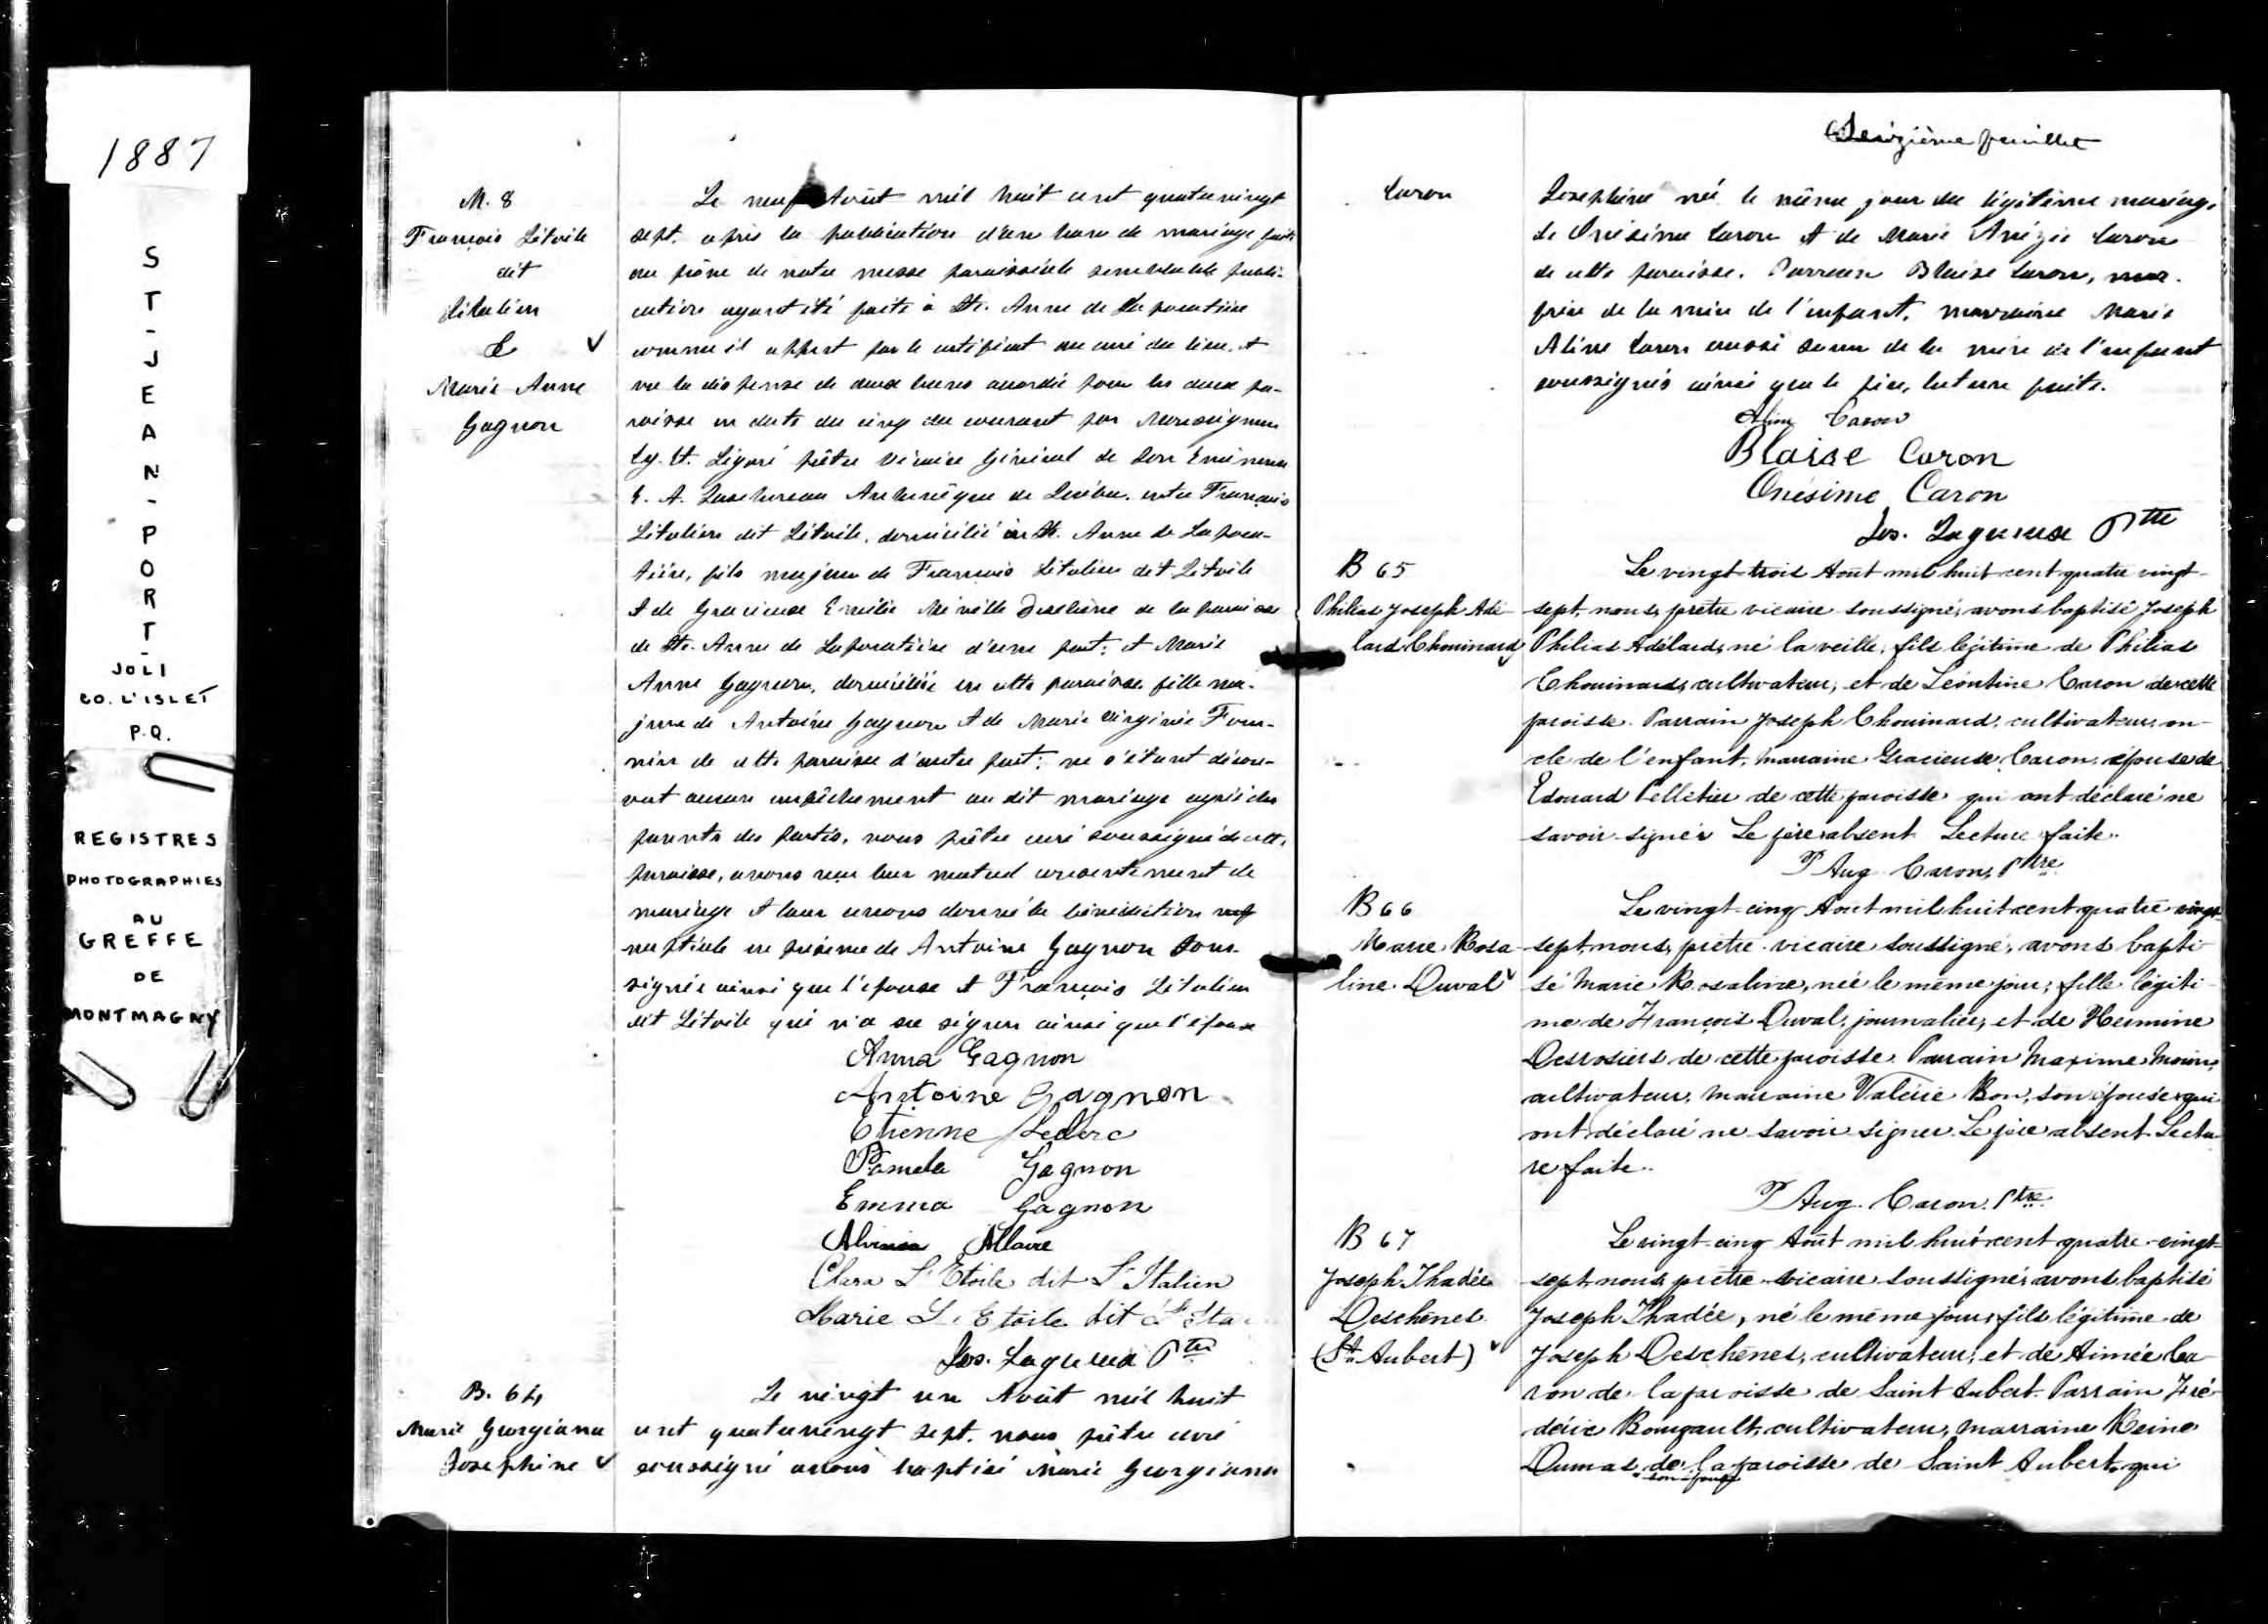 1887
ST-JEAN-PORT-
JOLI
CO. L'ISLET
P.Q.
REGISTRES
PHOTOGRAPHIES
AU
GREFFE
DE
MONTMAGNY
M. 8
François Létoile
dit
Litalien
&
Marie Anne
Gagnon
Le neuf Août mil huit cent quatrevingt
sept, après la publication d'un banc de mariage faite
au prône de notre messe paroissiale semblable publi-
cation ayant été faite à Ste. Anne de Lapocatière
comme il appert par le certificat du curé du lieu, et
vu la dispense de deux bancs accordée pour les deux pa-
roisse en date du cinq du courant par Monseigneur
Cy. Et. Légaré prêtre Vicaire Général de Son Eminence
E. A. Taschereau Archevêque de Québec, entre François
Litalien dit Létoile, domicilié à Ste. Anne de Lapoca-
tière, fils majeur de François Litalien dit Létoile
et de Gracieuse Emélie Miville Deschène de la paroisse
de Ste. Anne de Lapocatière d'une part; et Marie
Anne Gagnon, domiciliée en cette paroisse, fille ma-
jeure de Antoine Gagnon et de Marie Virginie Four-
nier de cette paroisse d'autre part; ne s'étant décou-
vert aucun empêchement au dit mariage agréé des
parents des parties, nous prêtre curé soussigné de cette
paroisse, avons reçu leur mutuel consentement de
mariage et leur avons donné la bénédiction
nuptiale en présence de Antoine Gagnon sous-
signé ainsi que l'épouse et François Litalien
dit Létoile qui n'a su signer ainsi que l'époux
Anna Gagnon
Antoine Gagnon
Etienne Leclerc
Pamela Gagnon
Emma Gagnon
Allaire
Clara L'Etoile dit L'Italien
Marie L'Etoile dit L'Ita
Jos. Lagueux Ptre
B. 64
Marie Georgiana
Josephine
Le vingt un Août mil huit
cent quatrevingt sept, nous prêtre curé
soussigné avons baptisé Marie Georgiana
Seizième feuillet
Caron
Josephine née le même jour du légitime mariage
de Onésime Caron et de Marie Arézie Caron
de cette paroisse. Parrain Blaise Caron,
frère de la mère de l'enfant, marraine Marie
Aline Caron aussi sœur de la mère de l'enfant
soussignés ainsi que le père, lecture faite.
Aline Caron
Blaise Caron
Onésime Caron
Jos. Lagueux Ptre
B 65
Philias Joseph Adé-
lard Chouinard
Le vingt-trois Août mil huit cent quatre vingt-
sept, nous, prêtre vicaire soussigné, avons baptisé Joseph
Philias Adélard, né la veille, fils légitime de Philias
Chouinard, cultivateur, et de Léontine Caron de cette
paroisse. Parrain Joseph Chouinard, cultivateur, on-
cle de l'enfant, marraine Gracieuse Caron, épouse de
Edouard Pelletier de cette paroisse qui ont déclaré ne
savoir signer. Le père absent. Lecture faite.
P Aug. Caron, Ptre
B 66
Marie Rosa-
line Duval
Le vingt-cinq Août mil huit cent quatre vingt-
sept, nous, prêtre vicaire soussigné, avons bapti-
sé Marie Rosaline, née le même jour, fille légiti-
me de François Duval, journalier, et de Hermine
Desrosiers de cette paroisse. Parrain Maxime Morin,
cultivateur, marraine Valérie Bon, son épouse, qui
ont déclaré ne savoir signer. Le père absent. Lectu-
re faite.
P Aug. Caron. Ptre
B 67
Joseph Thadée
Deschênes
(St. Aubert)
Le vingt-cinq Août mil huit cent quatre-vingt-
sept, nous, prêtre vicaire soussigné, avons baptisé
Joseph Thadée, né le même jour, fils légitime de
Joseph Deschênes, cultivateur, et de Aimée Ca-
ron de la paroisse de Saint Aubert. Parrain Fré-
déric Bougault, cultivateur, marraine Reine
Dumas, de la paroisse de Saint Aubert, qui
son épouse